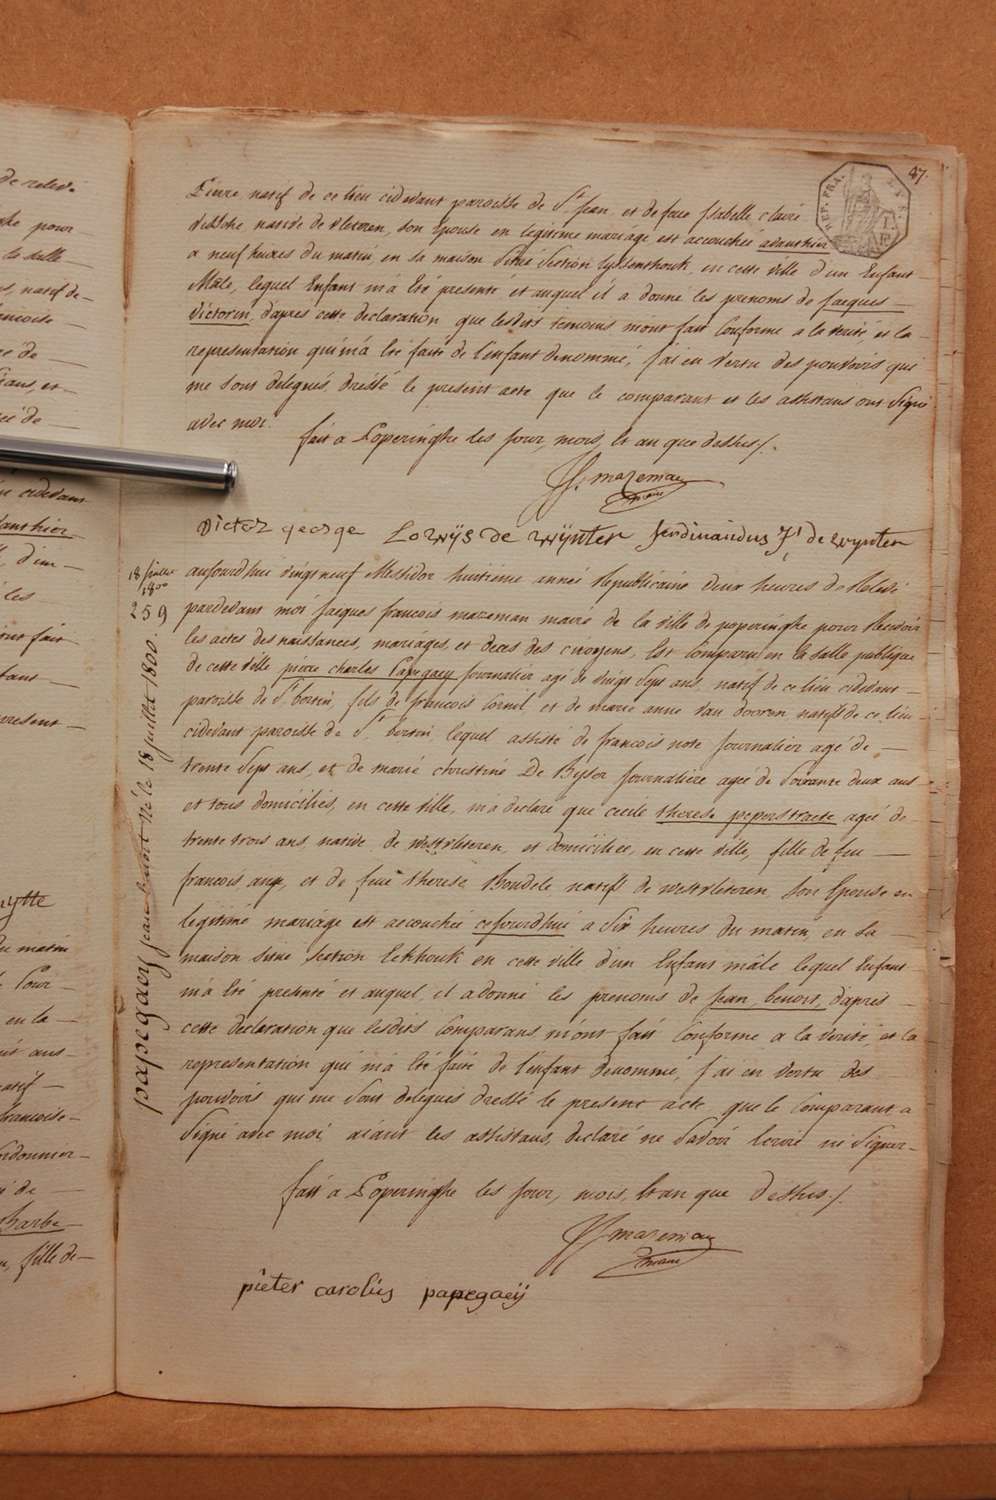 47
REP. FRA.
pierre natif de ce lieu cidevant paroisse de St. Jean et de feue Isabelle claire
native de vleteren, son Epouse en legitime mariage est accouchée avanthier
a neuf heures du matin, en sa maison sitüé Section en cette ville d'un Enfant
Mâle, lequel Enfant m'a été presenté et auquel il a donné les prenoms de Jacques
Victorin, d'apres cette declaration que lesdits temoins m'ont fait Conforme a la verité, et la
representation qui m'a été faite de l'enfant denommé, j'ai en vertu des pouvoirs qui
me sont delegués dressé le present acte que le comparant et les assistans ont signé
avec moi.
fait a Poperinghe les jour, mois, et an que dessus /.
J J mazeman
maire
Victor george Lowijs de wijnter ferdinandus de wynter
18 juillet
1800
259
papegaeij jean benoit né le 18 juillet 1800.
aujourd'hui vingt neuf Messidor huitieme année Republicaine deux heures de Relevé
pardevant moi jacques francois mazeman maire de la ville de poperinghe pour Recevoir
les actes des naissances, mariages, et deces des citoyens, Est Comparu en la salle publique
de cette ville pierre charles Papegaey journalier agé de vingt sept ans, natif de ce lieu cidevant
paroisse de St. bertin, fils de francois Cornil, et de marie anne van dooren natifs de ce lieu
cidevant paroisse de St. bertin lequel assisté de francois note journalier agé de
trente sept ans, et de marie christine De journaliere agée de soixante deux ans
et tous domiciliés, en cette ville, m'a declaré que cecile therese peperstraete agée de
trente trois ans native de westvleteren, et domiciliée, en cette ville, fille de feu
francois ange, et de feue therese Boudele natifs de westvleteren son Epouse en
legitime mariage est accouchée cejourdhui a six heures du matin, en sa
maison situé section Eekhouk en cette ville d'un Enfant mâle lequel Enfant
m'a été presenté et auquel il a donné les prenoms de jean benoit, d'apres
cette declaration que lesdits Comparans m'ont fait Conforme a la verité, et la
representation qui m'a été faite de l'enfant denommé, j'ai en vertu des
pouvoirs qui me sont delegués dressé le present acte que le Comparant a
signé avec moi, aiant les assistans, declaré ne savoir Ecrire ni signer
fait a Poperinghe les jour, mois, et an que dessus /.
J J mazeman
maire
pieter carolüs papegaeij